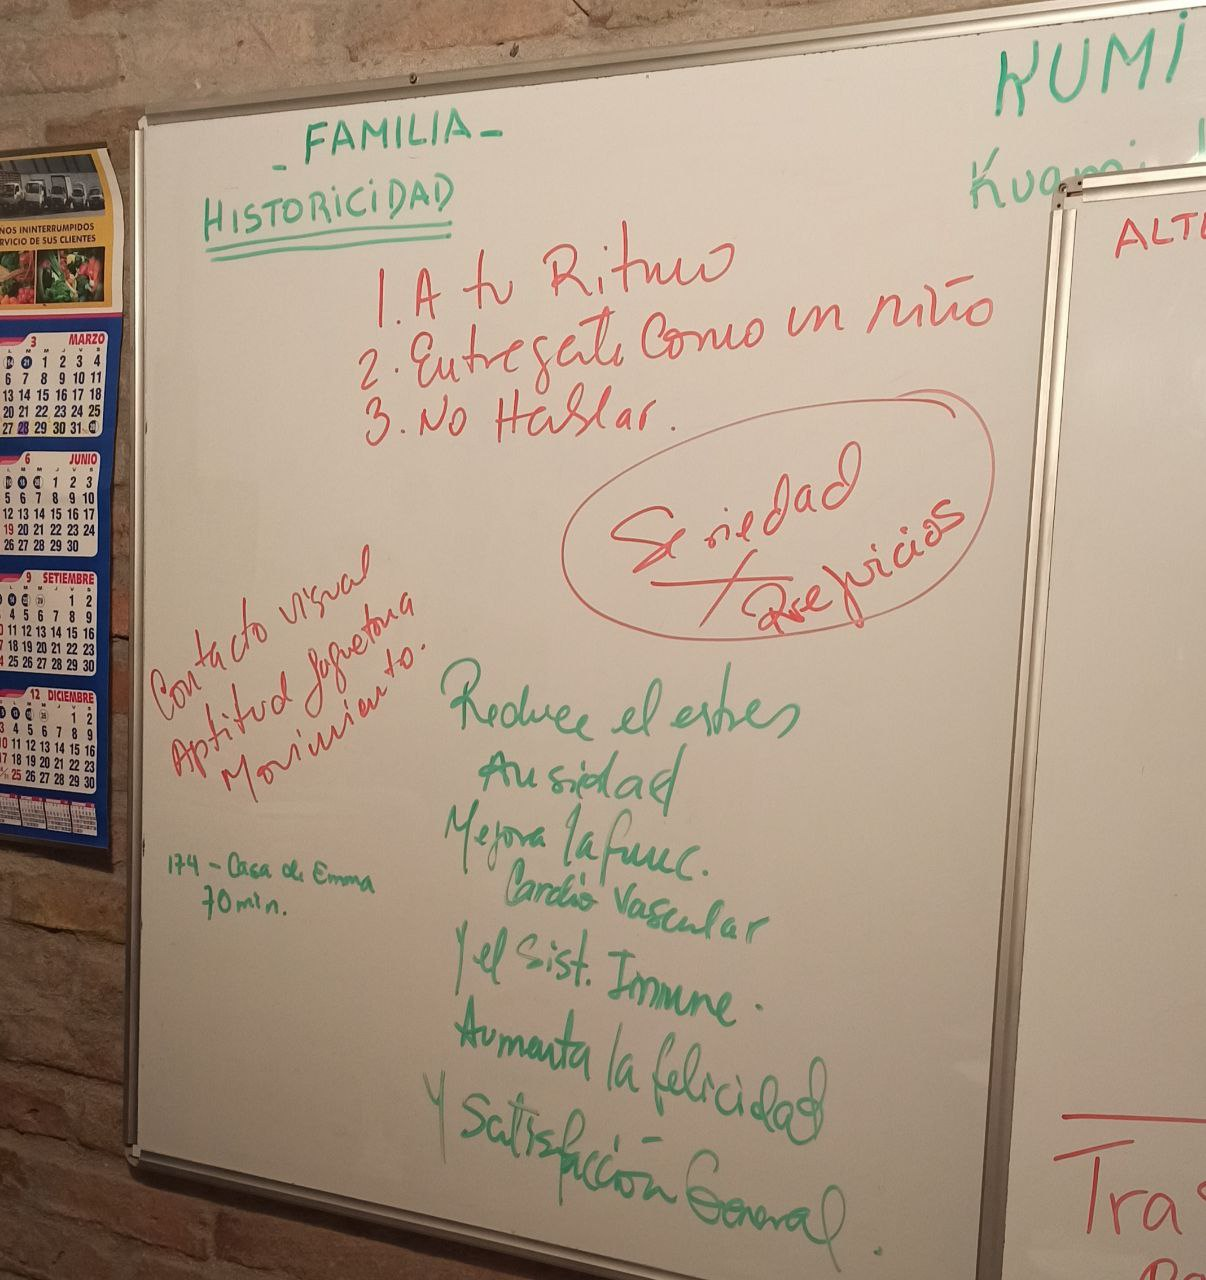 - FAMILIA -
HISTORICIDAD
KUMI
Kuami
1. A tu Ritmo
2. Entregate Como un niño
3. No Hablar.
Seriedad
Prejuicios
Contacto visual
Aptitud Juguetona
Movimiento.
Reduce el estres
Ansiedad
Mejora la func.
Cardio Vascular
y el Sist. Inmune.
Aumenta la felicidad
Y Satisfacción General.
174 - Casa de Emma
70 min.
ALTE
Tras
ÑOS ININTERRUMPIDOS
RVICIO DE SUS CLIENTES
3 MARZO
1 2 3 4
6 7 8 9 10 11
13 14 15 16 17 18
20 21 22 23 24 25
27 28 29 30 31
6 JUNIO
1 2 3
5 6 7 8 9 10
12 13 14 15 16 17
19 20 21 22 23 24
26 27 28 29 30
9 SETIEMBRE
1 2
4 5 6 7 8 9
11 12 13 14 15 16
18 19 20 21 22 23
25 26 27 28 29 30
12 DICIEMBRE
1 2
4 5 6 7 8 9
11 12 13 14 15 16
18 19 20 21 22 23
25 26 27 28 29 30